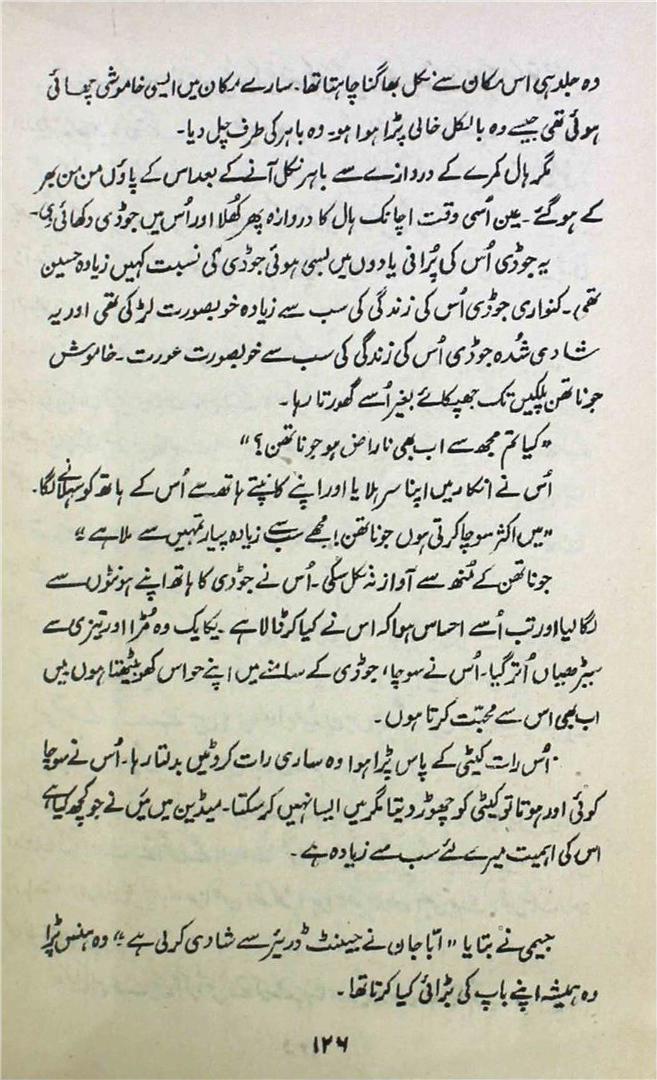 وہ جلد ہی اس مکان سے نکل بھاگنا چاہتا تھا۔ سارے مکان میں ایسی خاموشی چھائی
ہوئی تھی جیسے وہ بالکل خالی پڑا ہوا ہو۔ وہ باہر کی طرف چل دیا۔
مگر ہال کمرے کے دروازے سے باہر نکل آنے کے بعد اس کے پاؤں من من بھر
کے ہو گئے۔ عین اُسی وقت اچانک ہال کا دروازہ پھر کھُلا اور اُس میں جوڈی دکھائی دی۔
یہ جوڈی اُس کی پُرانی یادوں میں بسی ہوئی جوڈی کی نسبت کہیں زیادہ حسین
تھی۔ کنواری جوڈی اُس کی زندگی کی سب سے زیادہ خوبصورت لڑکی تھی اور یہ
شادی شُدہ جوڈی اُس کی زندگی کی سب سے خوبصورت عورت۔ خاموش
جوناتھن پلکیں تک جھپکائے بغیر اُسے گھورتا رہا۔
”کیا تم مجھ سے اب بھی ناراض ہو جوناتھن؟“
اُس نے انکار میں اپنا سر ہلایا اور اپنے کانپتے ہاتھ سے اُس کے ہاتھ کو سہلانے لگا۔
”میں اکثر سوچا کرتی ہوں جوناتھن! مجھے سب سے زیادہ پیار تمہیں سے ملا ہے“
جوناتھن کے مُنھ سے آواز نہ نکل سکی۔ اُس نے جوڈی کا ہاتھ اپنے ہونٹوں سے
لگا لیا اور تب اُسے احساس ہوا کہ اس نے کیا کر ڈالا ہے۔ یکایک وہ مُڑا اور تیزی سے
سیڑھیاں اُتر گیا۔ اُس نے سوچا، جوڈی کے سامنے میں اپنے حواس کھو بیٹھتا ہوں میں
اب بھی اس سے محبت کرتا ہوں۔
اُس رات کیٹی کے پاس پڑا ہوا وہ ساری رات کروٹیں بدلتا رہا۔ اُس نے سوچا
کوئی اور ہوتا تو کیٹی کو چھوڑ دیتا مگر میں ایسا نہیں کر سکتا۔ میڈین میں مَیں نے جو کچھ کیا ہے
اس کی اہمیت میرے لئے سب سے زیادہ ہے۔
جیمی نے بتایا ”ابّا جان نے جینٹ ڈریئر سے شادی کر لی ہے“ وہ ہنس پڑا
وہ ہمیشہ اپنے باپ کی بڑائی کیا کرتا تھا۔
۱۲۶